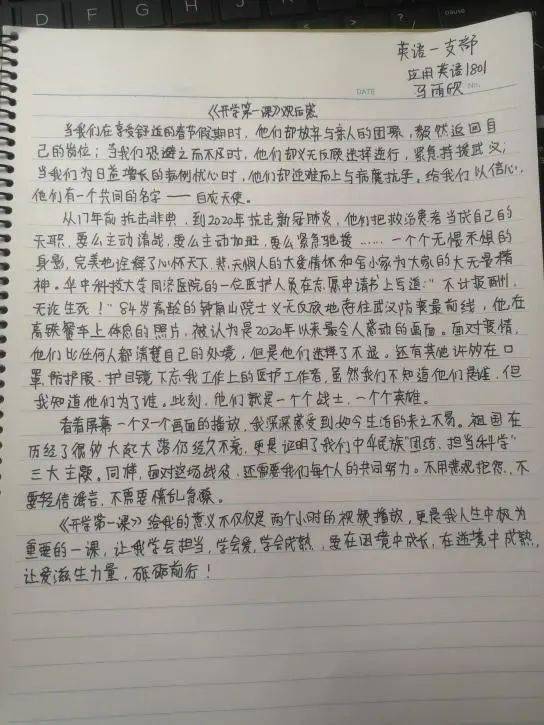 D F G H
pause
英语一支部
应用英语1801
DATE
马雨欣 No.
《开学第一课》观后感
当我们在享受舒适的春节假期时,他们却放弃与亲人的团聚,毅然返回自
己的岗位;当我们恐避之而不及时,他们却义无反顾选择逆行,紧急驰援武汉;
当我们为日益增长的病例忧心时,他们却迎难而上与病魔抗争。给我们以信心,
他们有一个共同的名字——白衣天使。
从17年前抗击非典,到2020年抗击新冠肺炎,他们把救治患者当成自己的
天职,要么主动请战,要么主动加班,要么紧急驰援……一个个无惧不惧的
身影,完美地诠释了心怀天下、悲天悯人的大爱情怀和舍小家为大家的大无畏精
神。华中科技大学同济医院的一位医护人员在志愿申请书上写道:“不计报酬,
无论生死!”84岁高龄的钟南山院士义无反顾地奔往武汉防疫最前线,他在
高铁餐车上休息的照片,被认为是2020年以来最令人感动的画面。面对疫情,
他们比任何人都清楚自己的处境,但是他们选择了不退。还有其他许多在口
罩、防护服、护目镜下忘我工作上的医护工作者,虽然我们不知道他们是谁,但
我知道他们为了谁。此刻,他们就是一个个战士,一个个英雄。
看着屏幕一个又一个画面的播放,我深深感受到如今生活的来之不易。祖国在
历经了很多大起大落仍经久不衰,更是证明了我们中华民族“团结、担当、科学”
三大主题。同样,面对这场战役,还需要我们每个人的共同努力。不用悲观抱怨,不
要轻信谣言,不需要慌乱急躁。
《开学第一课》给我的意义不仅仅是两个小时的视频播放,更是我人生中极为
重要的一课,让我学会担当,学会爱,学会成熟,要在困境中成长,在逆境中成熟,
让爱滋生力量,砥砺前行!